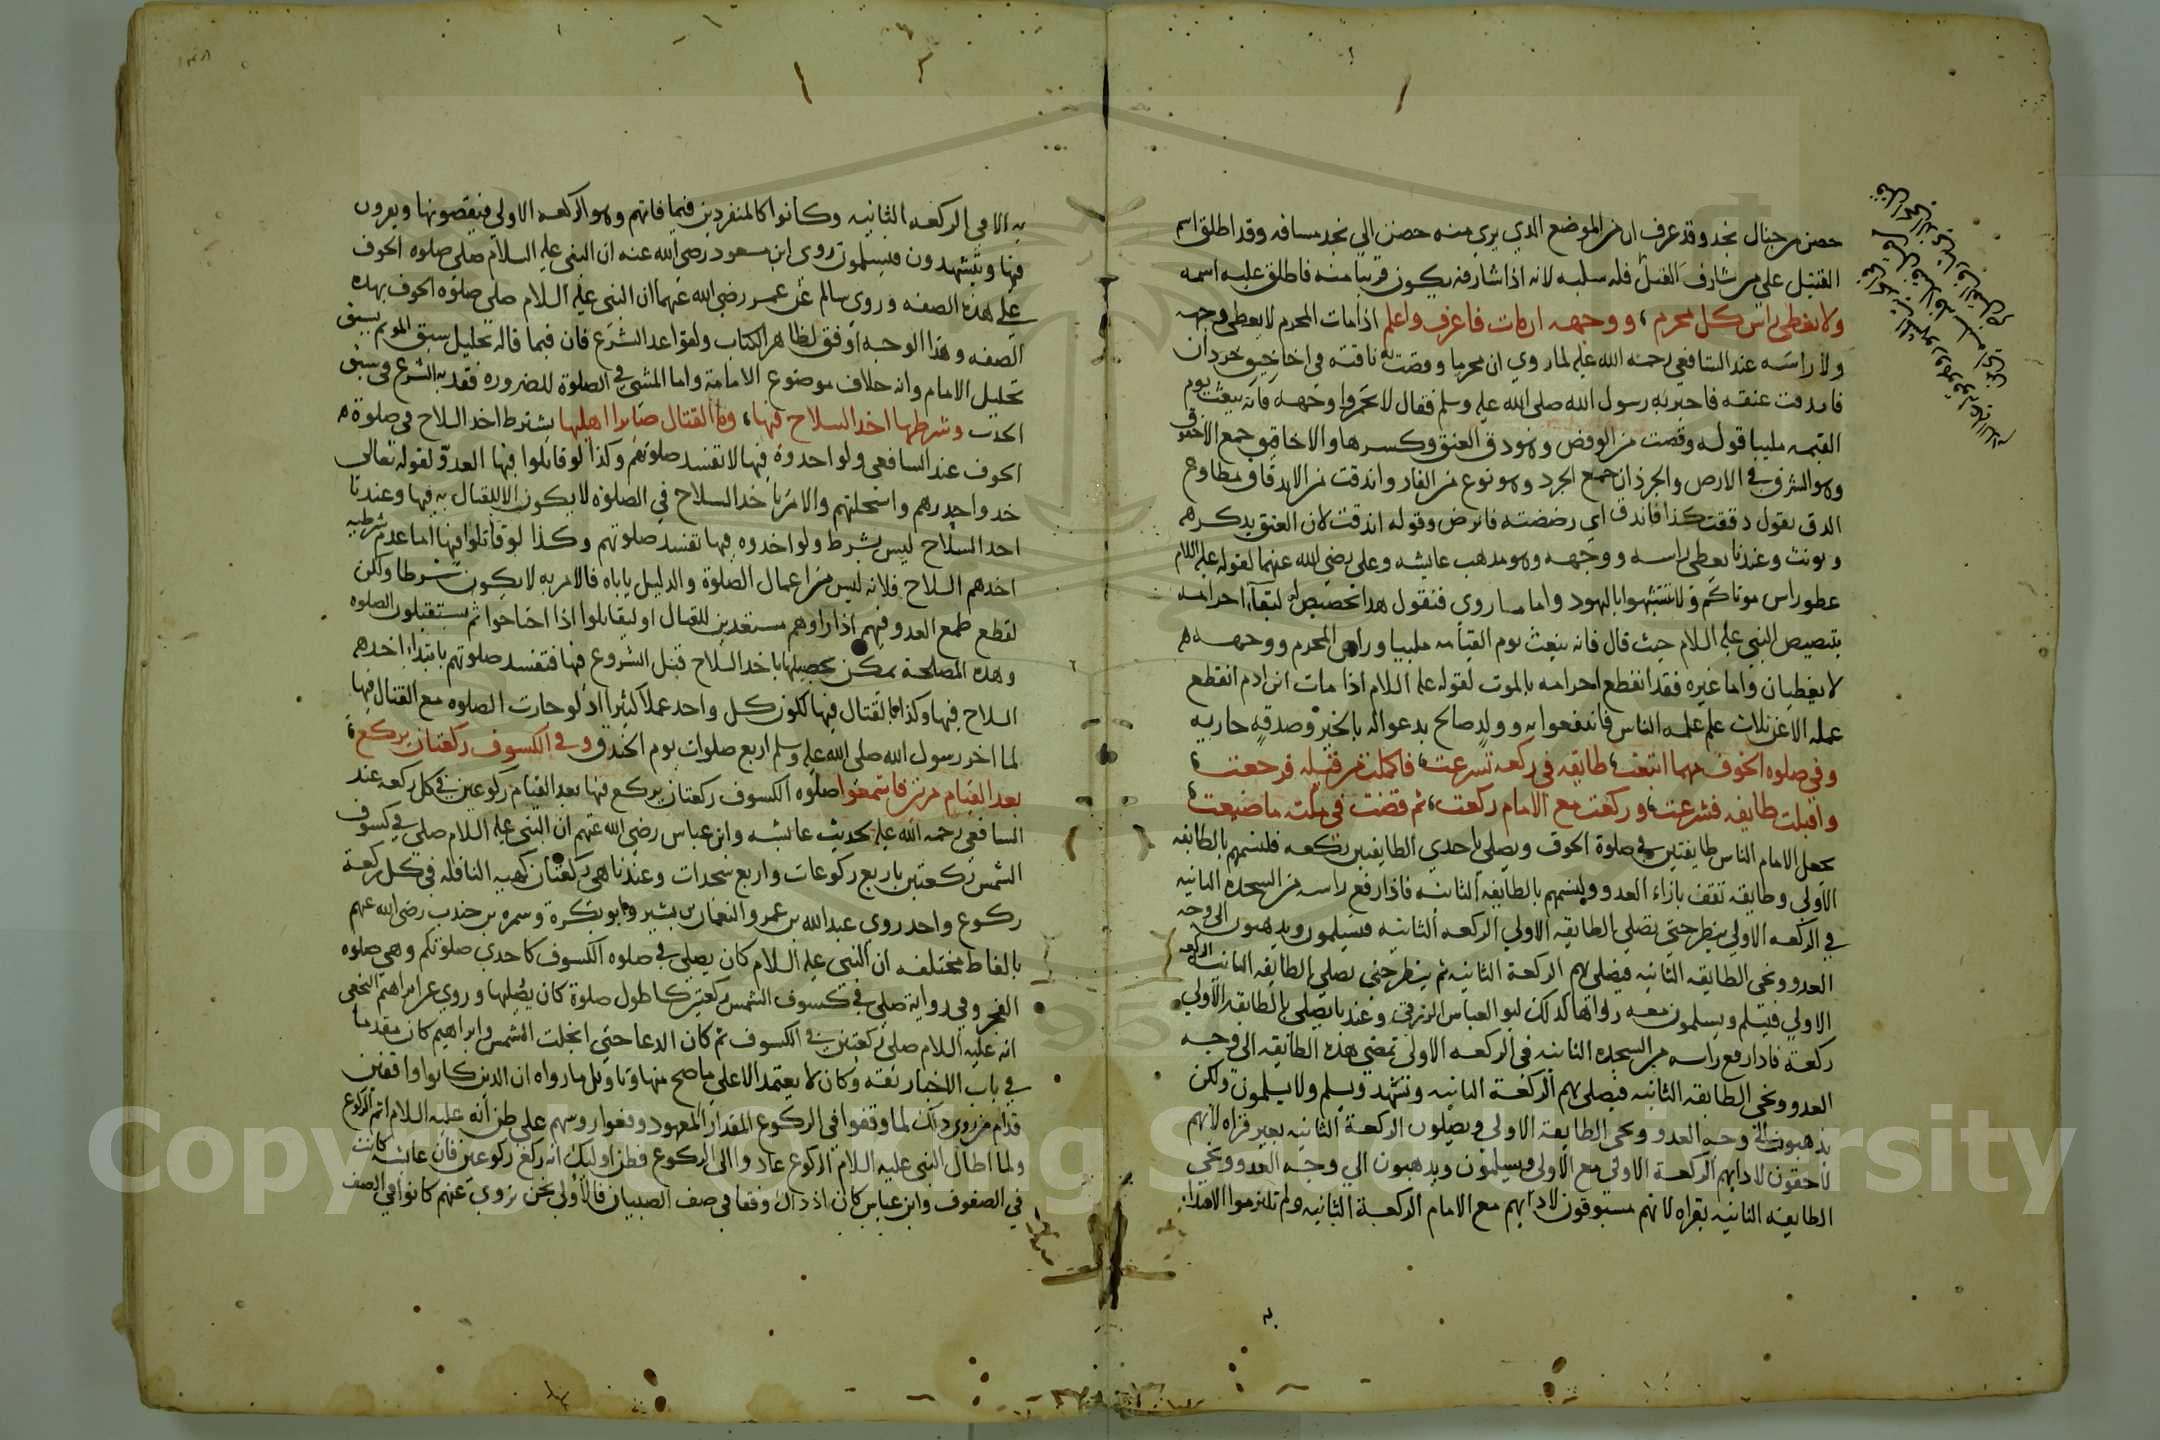 حصن من جبال نجد وقد عرف ان من الموضع الذي يرى منه حصن الي نجد مسافه وقد اطلق اسم
القتيل على من شارف القتل فله سلبه لانه اذا شارفه يكون قريبا منه فاطلق عليه اسمه
ولا يغطى راس كل محرم ووجهه ان مات فاعرف واعلم اذا مات المحرم لا يغطى وجهه
ولا راسه عند الشافعي رحمه الله عليه لما روي ان محرما وقصت به ناقته في اخاقيق جرذان
فاندقت عنقه فاخبر به رسول الله صلى الله عليه وسلم فقال لا تخمروا وجهه فانه يبعث يوم
القيمه ملبيا قوله وقصت من الوقص وهو دق العنق وكسرها والاخاقيق جمع الاخقوق
وهو الشق في الارض والجرذان جمع الجرذ وهو نوع من الفار واندقت من الاندقاق مطاوع
الدق يقول دققت كذا فاندق اي رضضته فانرض وقوله اندقت لان العنق يذكر هم
ويونث وعندنا يغطى راسه ووجهه وهو مذهب عايشه وعلي رضي الله عنهما لقوله عليه السلام
غطوا راس موتاكم ولا تشبهوا بالهود واما ما روى فنقول هذا تخصيص له لبقاء احرامه
بتنصيص النبي عليه السلام حيث قال فانه يبعث يوم القيامه ملبيا وراس المحرم ووجهه هم
لا يغطيان واما غيره فقد انقطع احرامه بالموت لقوله عليه السلام اذا مات ابن ادم انقطع
عمله الا عن ثلاث علم علمه الناس فانتفعوا به وولد صالح يدعوا له بالخير وصدقه جاريه
وفي صلوه الخوف مهما انبغت طايفه في ركعه تسرعت فاكملت من قبله فرجعت
واقبلت طايفه فشرعت وركعت مع الامام ركعت ثم قضت في مكث ما ضيعت
يجعل الامام الناس طايفتين في صلوة الخوف ويصلي باحدي الطايفتين ركعه فلنسمهم بالطايفه
الاولى وطايفه تقف بازاء العدو ولنسمهم بالطايفه الثانيه فاذا رفع راسه من السجده الثانيه
في الركعه الاولي ينتظر حتى تصلي الطايفه الاولي الركعه الثانيه فيسلمون ويذهبون الى وجه
العدو وتجي الطايفه الثانيه فيصلي بهم الركعة الثانيه ثم ينتظر حتى يصلي الطايفه الثانيه الركعه
الاولي فيسلم ويسلمون معه رواها كذلك ابو العباس وعندنا يصلي بالطايفه الاولي
ركعة فاذا رفع راسه من السجده الثانيه في الركعه الاولى تمضي هذه الطايفه الى وجه
العدو وتجي الطايفه الثانيه فيصلي بهم الركعة الثانيه ويتشهد ويسلم ولا يسلمون ولكن
يذهبون الى وجه العدو وتجي الطايفة الاولي ويصلون الركعة الثانيه بغير قراه لانهم
لاحقون لادايهم الركعة الاولى مع الاولى ويسلمون ويذهبون الي وجه العدو وتجي
الطايفه الثانيه بقراه لانهم مسبوقون لادايهم مع الامام الركعة الثانيه ولم يلتزموا الاقتدا
به الا في الركعه الثانيه وكانوا كالمنفردين فيما فاتهم وهو الركعه الاولي فيقضونها ويقرون
فيها ويتشهدون فيسلمون روى ابن مسعود رضي الله عنه ان النبي عليه السلام صلى صلوه الخوف
على هذه الصفه وروى سالم عن عمر رضي الله عنهما ان النبي عليه السلام صلى صلوه الخوف بهذه
الصفه وهذا الوجه اوفق لظاهر الكتاب ولقواعد الشرع فان فيما قاله تحليل سبق الموتم يسبق
تحليل الامام وانه خلاف موضوع الامامة واما المشي في الصلوة للضروره فقد به الشرع في سبق
الحدث وشرطها اخذ السلاح فيها وذا القتال ضاير اهلها يشترط اخذ السلاح في صلوة هم
الخوف عند الشافعي ولو اخذوه فيها لا تفسد صلوتهم وكذا لو قاتلوا فيها العدو لقوله تعالى
خذوا حذرهم واسلحتهم والامر باخذ السلاح في الصلوه لا يكون الا للقتال به فيها وعندنا
اخذ السلاح ليس بشرط ولو اخذوه فيها تفسد صلوتهم وكذا لو قاتلوا فيها اما عدم شرطيه
اخذهم السلاح فلانه ليس من اعمال الصلوة والدليل ياباه فالامر به لا يكون شرطا ولكن
لقطع طمع العدو فيهم اذا راوهم مستعدين للقتال او ليقاتلوا اذا احتاجوا ثم يستقبلون الصلوه
وهذه المصلحة يمكن تحصيلها باخذ السلاح قبل الشروع فيها فتفسد صلوتهم بابتداء اخذهم
السلاح فيها وكذا بالقتال فيها لكون كل واحد عملا كثيرا اذ لو جازت الصلوه مع القتال فيها
لما اخر رسول الله صلى الله عليه وسلم اربع صلوات يوم الخندق وفي الكسوف ركعتان يركع
بعد القيام مرتين فاستمعوا صلوه الكسوف ركعتان يركع فيها بعد القيام ركوعين في كل ركعه عند
الشافعي رحمه الله عليه لحديث عايشه وابن عباس رضي الله عنهم ان النبي عليه السلام صلى في كسوف
الشمس ركعتين باربع ركوعات واربع سجدات وعندنا هي ركعتان كهيه النافله في كل ركعة
ركوع واحد روى عبد الله بن عمرو والنعمان بن بشير وابو بكرة وسمره بن جندب رضي الله عنهم
بالفاظ مختلفه ان النبي عليه السلام كان يصلي في صلوه الكسوف كاحدي صلوتكم وهي صلوه
الفجر وفي رواية صلى في كسوف الشمس ركعتين كاطول صلوة كان يصليها وروي عن ابراهيم النخعي
انه عليه السلام صلى ركعتين في الكسوف ثم كان الدعا حتى انجلت الشمس وابراهيم كان مقدما
في باب الاخبار ثقه وكان لا يعتمد الا على ما صح منها وتاويل ما رواه ان الذين كانوا واقفين
قدام من روى ذلك لما وقفوا في الركوع المقدار المعهود رفعوا روسهم على ظن انه عليه السلام اتم الركوع
ولما اطال النبي عليه السلام الركوع عادوا الى الركوع فظن اوليك انه ركع ركوعين فان عايشه كانت
في الصفوف وابن عباس كان اذ ذاك وقفا في صف الصبيان فالاولى بنحن نروي عنهم كانوا في الصف
Copyright © King Saud University